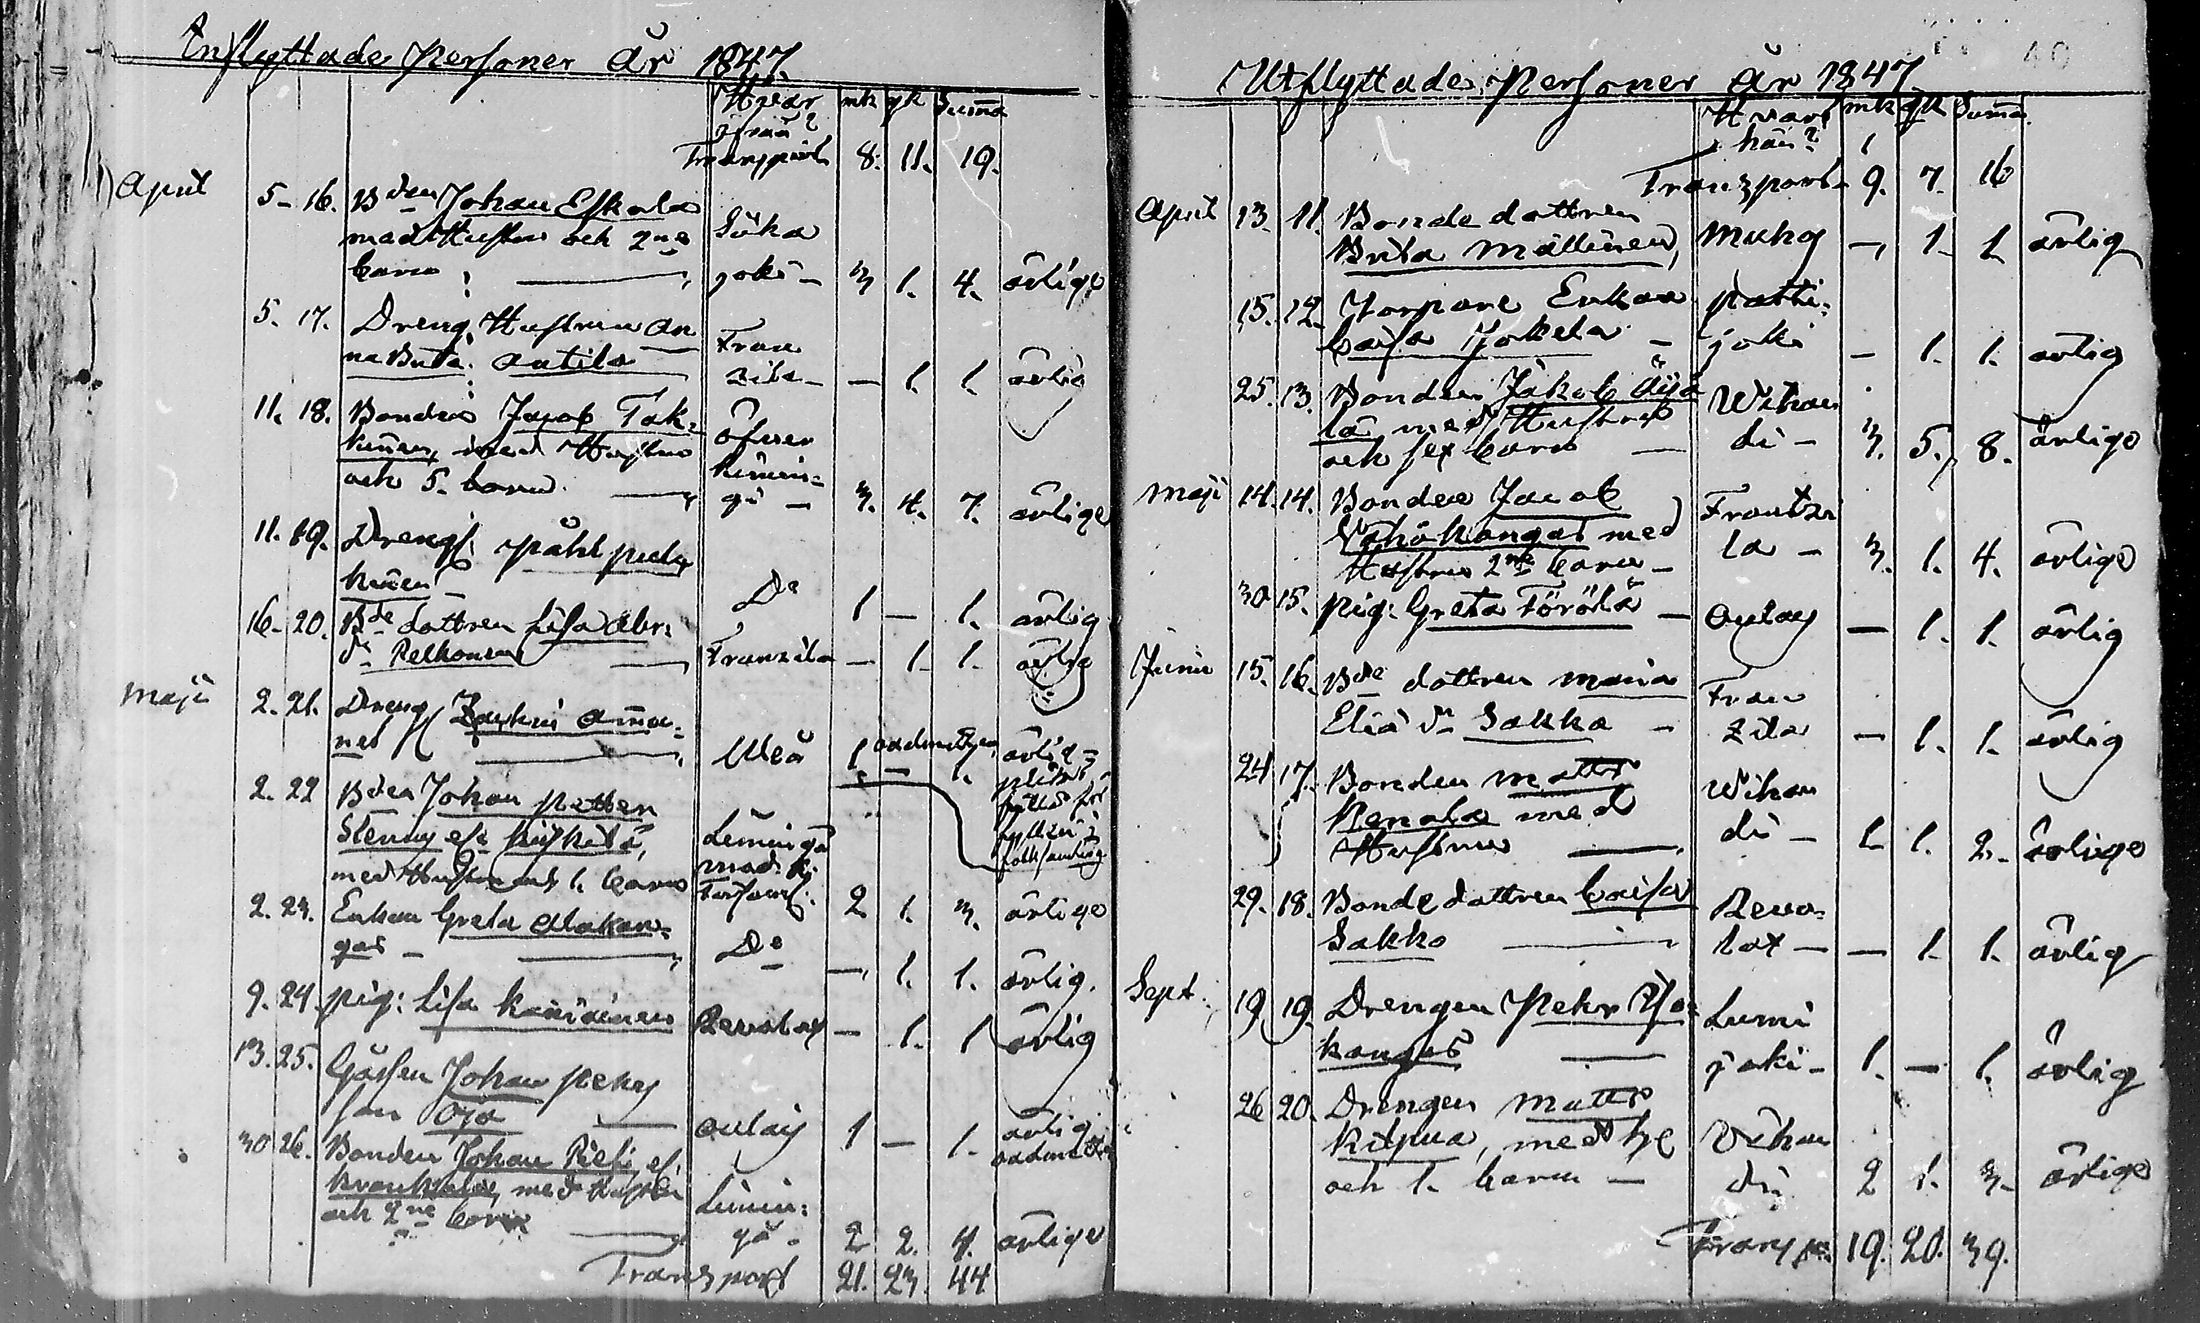 Inflyttade Personer År 1847.
Hvar mk qk Summa
ifrån?
Transport 8. 11. 19.
April 5. 16. Bden Johan Eskola
med Hustru och 2ne Siika
barn joki - 3 1. 4. ärlige
5. 17. Dreng Hustrun An
na Brita Antila Fran
zila - — 1. 1. ärlig
11. 18. Bonden Jacob Tak- Öfver
kinen, med Hustru Kimin-
och 5. barn gi - 3. 4. 7. ärlige
11. 19. Drengs. Påhl
kinen Do 1 — 1. ärlig
16. 20. Bde dottren Lisa Abr:
dr Pelkonen Franzila — 1. 1. ärlig
Maji 2. 21. Dreng Zachris
Uleå 1 — 1. ärlig
2. 22 Bden Johan Petter
Limingo
med Hustru och 1. barn 2 1. 3. ärlige
2. 23. Enkan Greta Alakan-
gas - Do — 1. 1. ärlig.
9. 24. Pig: Lisa Revolax — 1. 1 ärlig
13. 25. Gossen Johan Pehrs
son Oja Oulais 1 — 1. ärlig
oadmitt.
30 26. Bonden Johan
med Hustru Limin-
och 2ne barn go - 2 2. 4. ärlige
Transport 21. 23. 44
40
Utflyttade Personer År 1847
Hvart mk qk Summa.
hän?
Transport 9. 7. 16
April 13. 11. Bonde dottren
Brita Mällinen, Muhos — 1. 1. ärlig
15. 12. Torpare Enkan Patti-
Caisa Jokela - joki — 1. 1. ärlig
25. 13. Bonden Jakob Äijä Wihan
lä med Hustru
och sex barn di - 3. 5. 8. ärlige
Maji 14. 14. Bonden Jacob Frantzi
Vähäkangas med
Hustru 2ne barn - la - 3. 1. 4. ärlige
30 15. Pig: Greta Törölä - Oulais — 1. 1. ärlig
Junii 15. 16. Bde dottren Maria Fran
Eliä dr Sakko - zila — 1. 1. ärlig
24 17. Bonden Matts Wihan
Renala med
Hustru di - 1. 1. 2. ärlige
29. 18. Bonde dottren Caisa Revo-
Sakko lax — — 1. 1. ärlig
Sept. 19 19. Drengen Pehr Yo- Lumi
kangas joki - 1. — 1. ärlig
26 20. Drengen Matts
Kilpua, med h. Vihan
och 1. barn - di 2 1. 3. ärlige
Transp. 19. 20. 39.